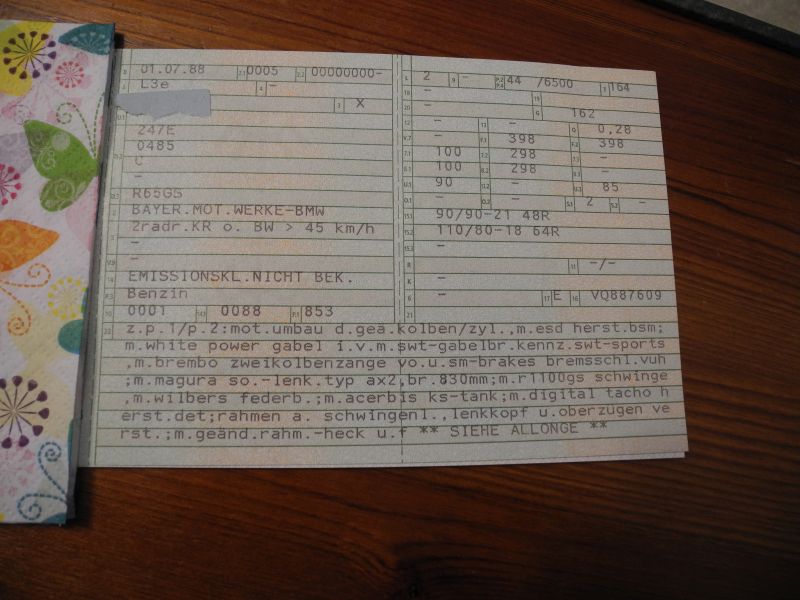 01.07.88 0005 00000000-
L3e -
X
247E
0485
C
-
R65GS
BAYER.MOT.WERKE-BMW
2radr.KR o. BW > 45 km/h
-
-
EMISSIONSKL.NICHT BEK.
Benzin
0001 0088 853
2 - 44 /6500 164
-
- 162
- - 0,28
- 398 398
100 298 -
100 298 -
90 - 85
- - 2 -
90/90-21 48R
110/80-18 64R
-
- -/-
- E VQ887609
z.p.1/p.2:mot.umbau d.geä.kolben/zyl.,m.esd herst.bsm;
m.white power gabel i.v.m.swt-gabelbr.kennz.swt-sports
,m.brembo zweikolbenzange vo.u.sm-brakes bremsschl.vuh
;m.magura so.-lenk.typ ax2,br.830mm;m.r1100gs schwinge
,m.wilbers federb.;m.acerbis ks-tank;m.digital tacho h
erst.det;rahmen a. schwingenl.,lenkkopf u.oberzügen ve
rst.;m.geänd.rahm.-heck u.f ** SIEHE ALLONGE **